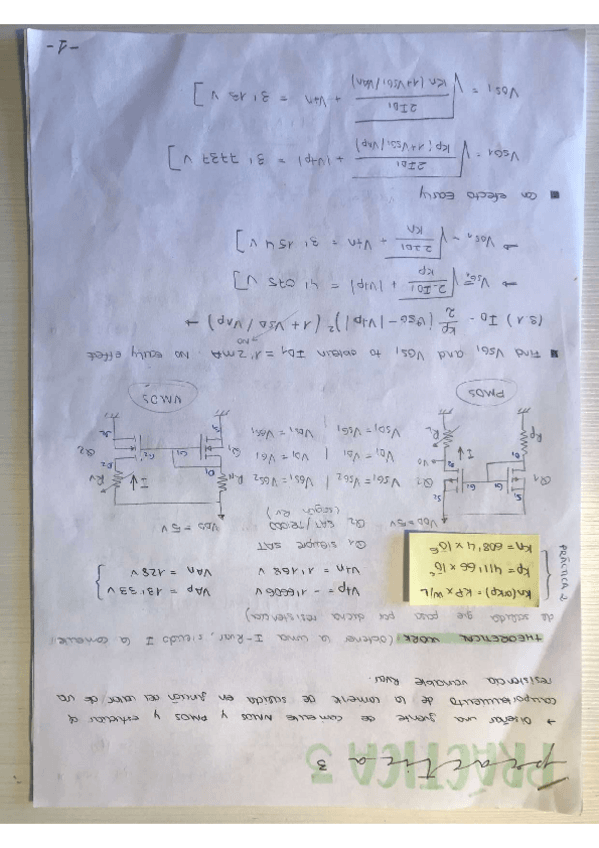 PRÁCTICA 3
práctica 3
→ Diseñar una fuente de corriente NMOS y PMOS y estudiar el
comportamiento de la corriente de salida en función del valor de una
resistencia variable Rvar.
THEORETICAL WORK: (obtener la curva I-Rvar, siendo I la corriente
de salida que pasa por dicha resistencia)
PRÁCTICA 2
Kn(orKp) = KP x W/L
Kp = 411'66 x 10⁻⁶
Kn = 608'4 x 10⁻⁶
Vtp = -1'6606 V VAp = 13'33 V
Vtn = 1'168 V VAn = 128 V
Q1 siempre SAT
Q2 SAT/TRIODO
(según Rv)
VDD = 5V
VDD = 5V
VSG1 = VSG2 | VGS1 = VGS2
VD1 = VG1 | VD1 = VG1
VSD1 = VSG1 | VDS1 = VGS1
PMOS
NMOS
■ Find VSG1 and VGS1 to obtain ID1 = 1'2 mA. No early effect
(S.1) ID = Kp/2 (VSG - |Vtp|)² (1 + VSD/VAp) →
NO
→ VSG1 = √(2·ID1/Kp) + |Vtp| = 4'075 V]
→ VGS1 = √(2·ID1/Kn) + Vtn = 3'154 V]
■ con efecto Early
VSG1 = √(2ID1/Kp(1+VSG1/VAp)) + |Vtp| = 3'7737 V]
VGS1 = √(2ID1/Kn(1+VGS1/VAn)) + Vtn = 3'13 V]
-1-